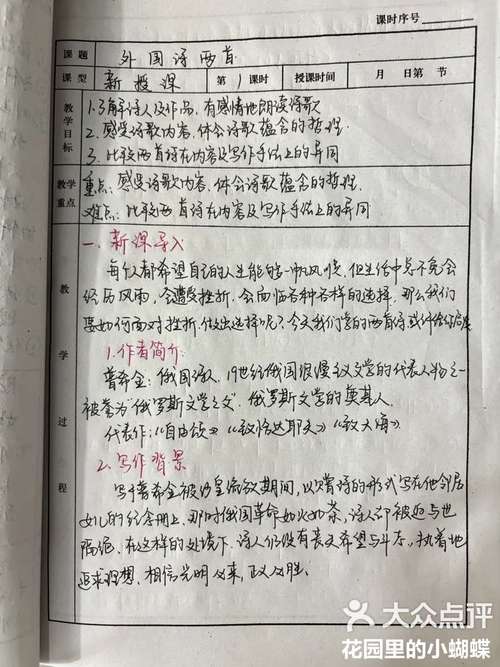 课时序号
课题 外国诗两首
课型 新授课 第 1 课时 授课时间 月 日第 节
教学目标
1.了解诗人及作品,有感情地朗读诗歌
2.感受诗歌内容,体会诗歌蕴含的哲理.
3.比较两首诗在内容及写作手法上的异同
教学重点
重点:感受诗歌内容,体会诗歌蕴含的哲理.
难点:比较两首诗在内容及写作手法上的异同
教学过程
一、新课导入
每个人都希望自己的人生能够一帆风顺,但生活中总不免会
经历风雨,会遭受挫折,会面临各种各样的选择,那么我们
要如何面对挫折,做出选择呢?今天我们学的两首诗或许会给你启
1.作者简介:
普希金:俄国诗人,19世纪俄国浪漫主义文学的代表人物之一
被誉为"俄罗斯文学之父",俄罗斯文学的奠基人.
代表作:《自由颂》《致恰达耶夫》《致大海》
2.写作背景
写于普希金被沙皇流放期间,以赠诗的形式写在他邻居
女儿的纪念册上.那时俄国革命如火如荼,诗人却被迫与世
隔绝.在这样的处境下,诗人仍没有丧失希望与斗志,执着地
追求理想,相信光明必来,正义必胜.
大众点评
花园里的小蝴蝶